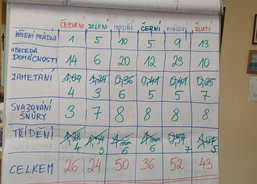 ČERVENÍ ZELENÍ MODŘÍ ČERNÍ FIALOVÍ ŽLUTÍ
VĚŠENÍ PRÁDLA 1 5 10 5 9 13
ABECEDA
DOMÁCNOSTI 14 6 20 12 23 10
ZAMETÁNÍ
4 3 6 5 5 7
SVAZOVÁNÍ
ŠŇŮRY 3 7 8 8 8 8
TŘÍDĚNÍ
4 3 6 6 7 5
CELKEM 26 24 50 36 52 43